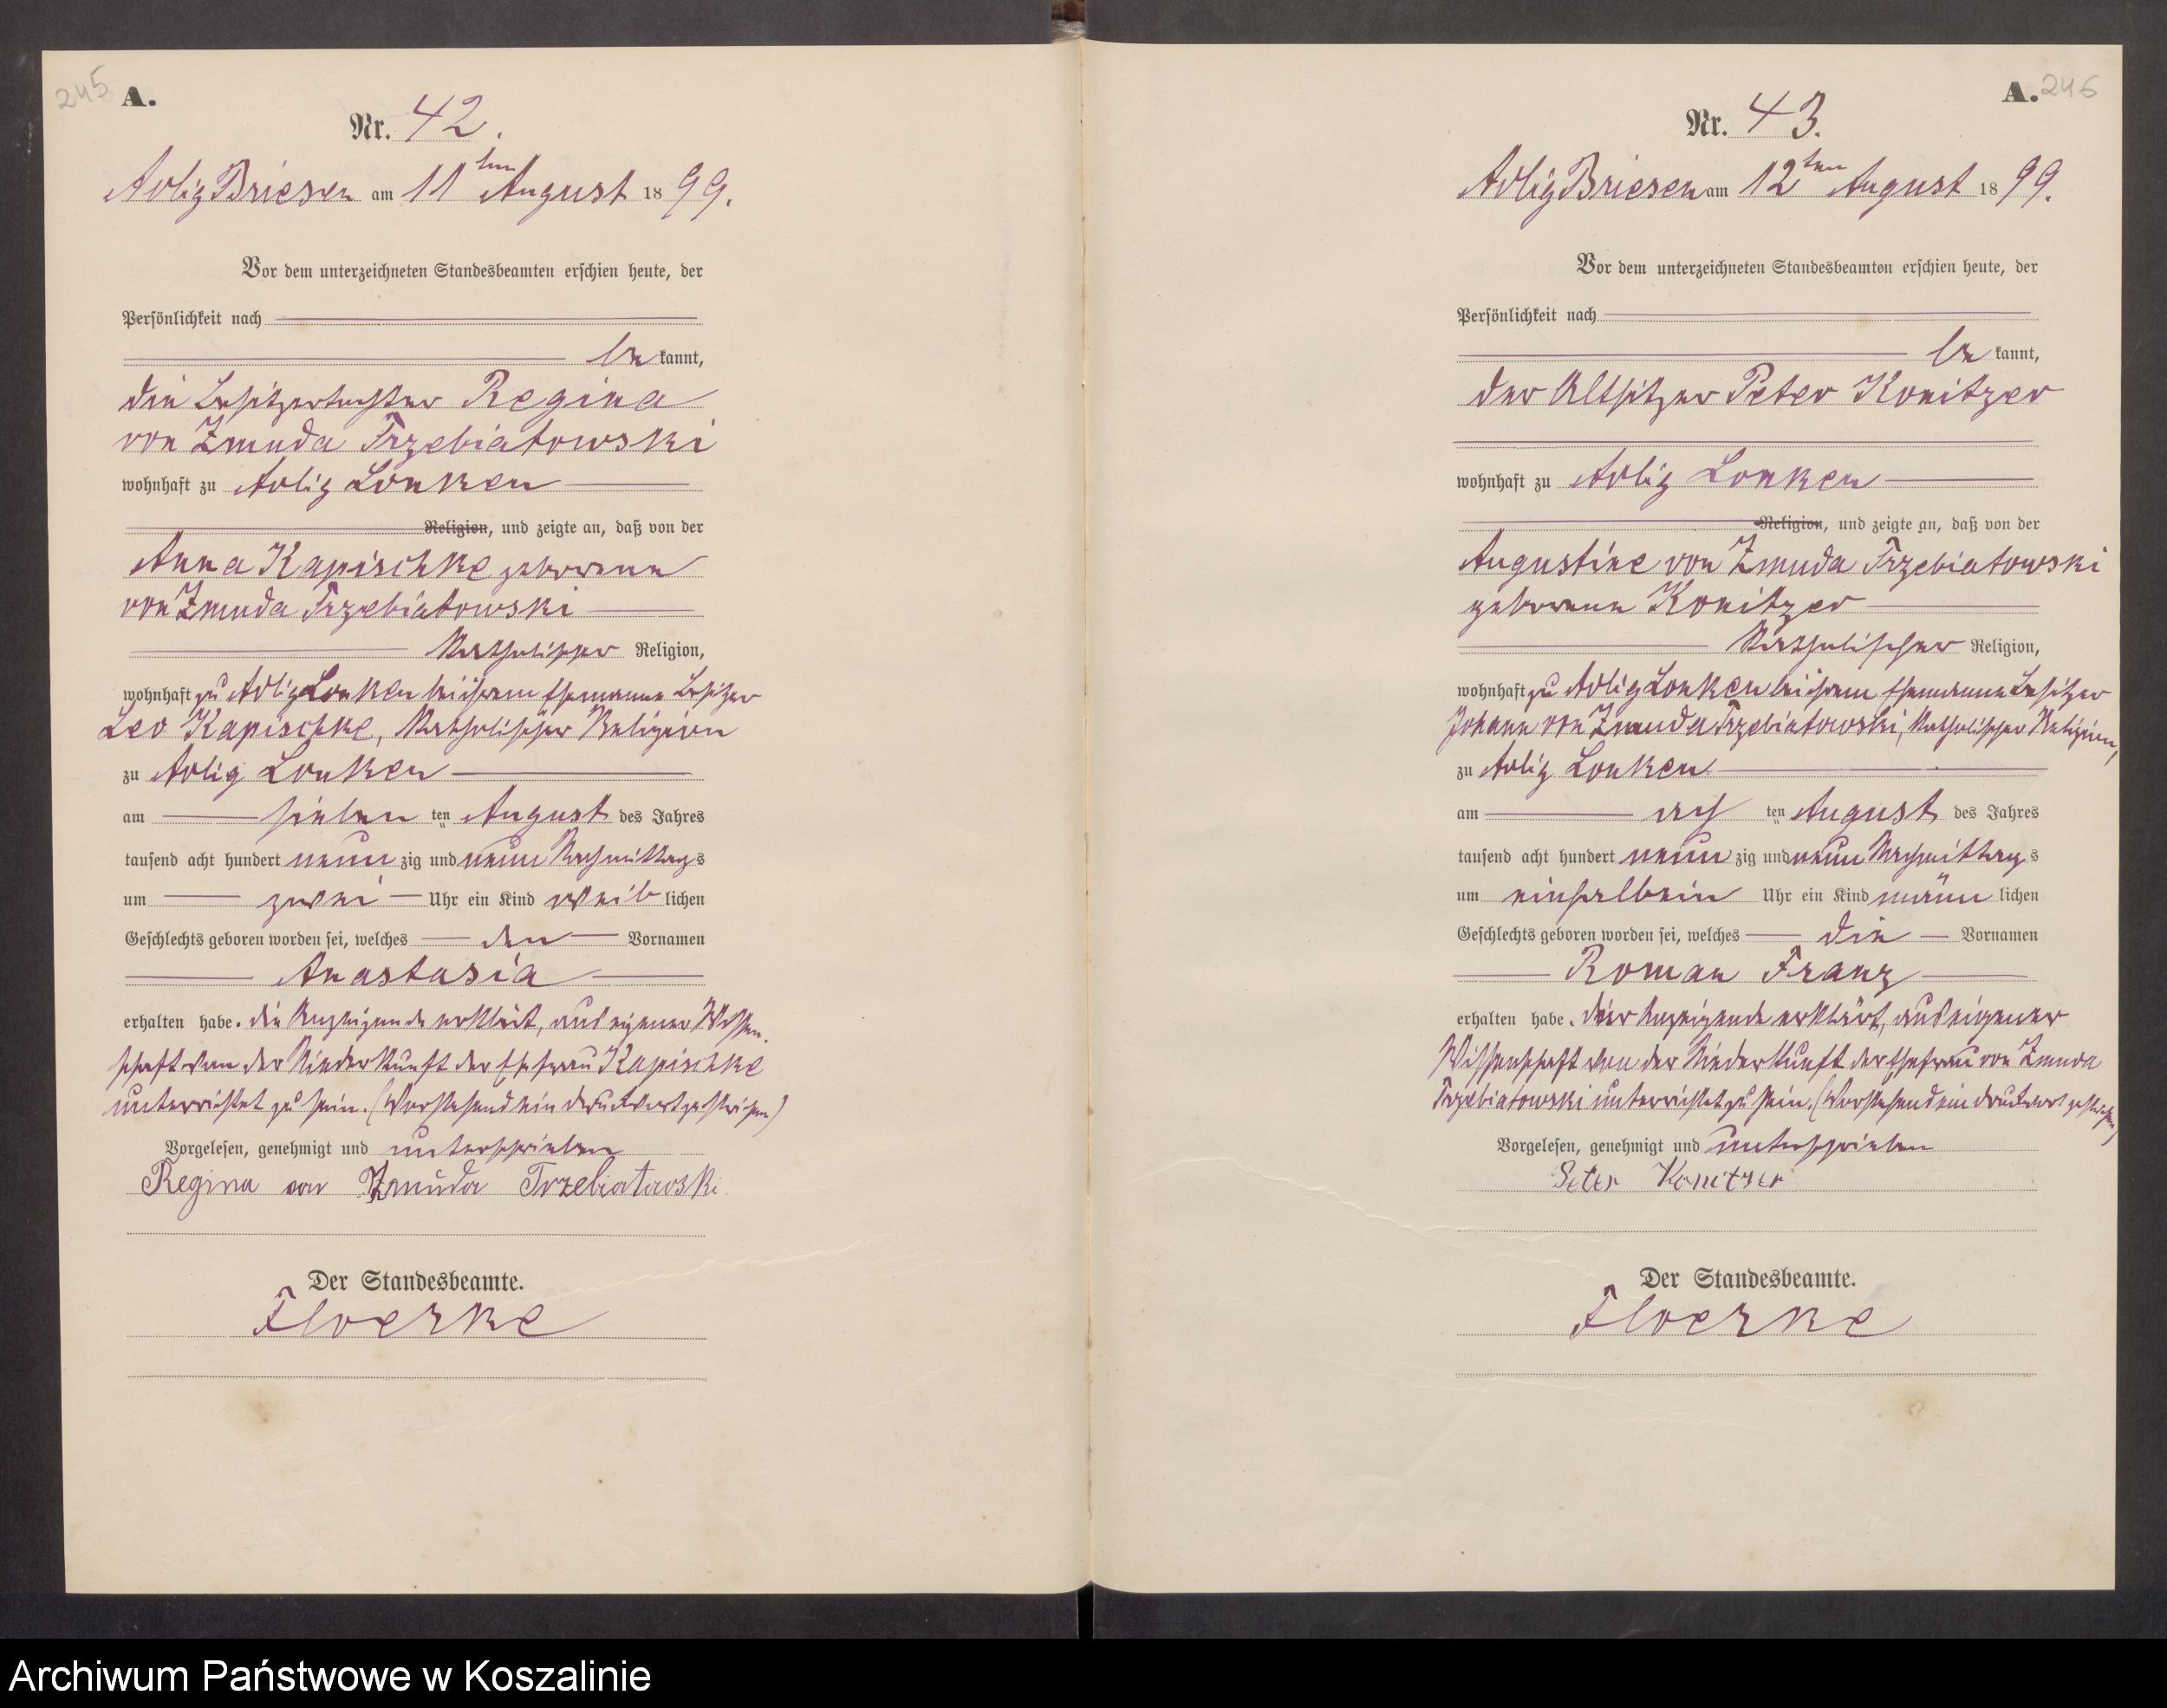 245
A.
Nr. 42.
Adlig Briesen am 11ten August 1899.
Vor dem unterzeichneten Standesbeamten erschien heute, der
Persönlichkeit nach
be kannt,
die Besitzertochter Regina
von Zmuda Trzebiatowski
wohnhaft zu Adlig Lonken
Religion, und zeigte an, daß von der
Anna Kapischke geborenen
von Zmuda Trzebiatowski
katholischer Religion,
wohnhaft zu Adlig Lonken bei ihrem Ehemanne Besitzer
Leo Kapischke, katholischer Religion
zu Adlig Lonken
am sieben ten August des Jahres
tausend acht hundert neun zig und neun Nachmittags
um zwei Uhr ein Kind weib lichen
Geschlechts geboren worden sei, welches den Vornamen
Anastasia
erhalten habe. die Anzeigende erklärt, aus eigener Wissen-
schaft von der Niederkunft der Ehefrau Kapischke
unterrichtet zu sein. (Vorstehend ein Druckwort gestrichen)
Vorgelesen, genehmigt und unterschrieben
Regina von Zmuda Trzebiatowski
Der Standesbeamte.
Floerke
A. 246
Nr. 43.
Adlig Briesen am 12ten August 1899.
Vor dem unterzeichneten Standesbeamten erschien heute, der
Persönlichkeit nach
be kannt,
der Altsitzer Peter Konitzer
wohnhaft zu Adlig Lonken
Religion, und zeigte an, daß von der
Augustine von Zmuda Trzebiatowski
geborenen Konitzer
katholischer Religion,
wohnhaft zu Adlig Lonken bei ihrem Ehemanne Besitzer
Johann von Zmuda Trzebiatowski, katholischer Religion,
zu Adlig Lonken
am ach ten August des Jahres
tausend acht hundert neun zig und neun Nachmittags
um einhalbein Uhr ein Kind männ lichen
Geschlechts geboren worden sei, welches die Vornamen
Roman Franz
erhalten habe. der Anzeigende erklärt, aus eigener
Wissenschaft von der Niederkunft der Ehefrau von Zmuda
Trzebiatowski unterrichtet zu sein. (Vorstehend ein Druckwort gestrichen)
Vorgelesen, genehmigt und unterschrieben
Peter Konitzer
Der Standesbeamte.
Floerke
Archiwum Państwowe w Koszalinie